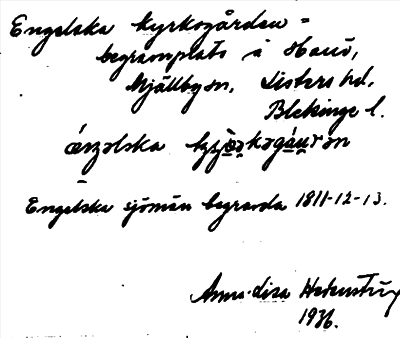 Engelska kyrkogården =
begravnplats å Hanö,
Mjällby sn, Listers hd,
Blekinge l.
Engelska sjömän begravda 1811-12-13.
Anna-Lisa
1936.